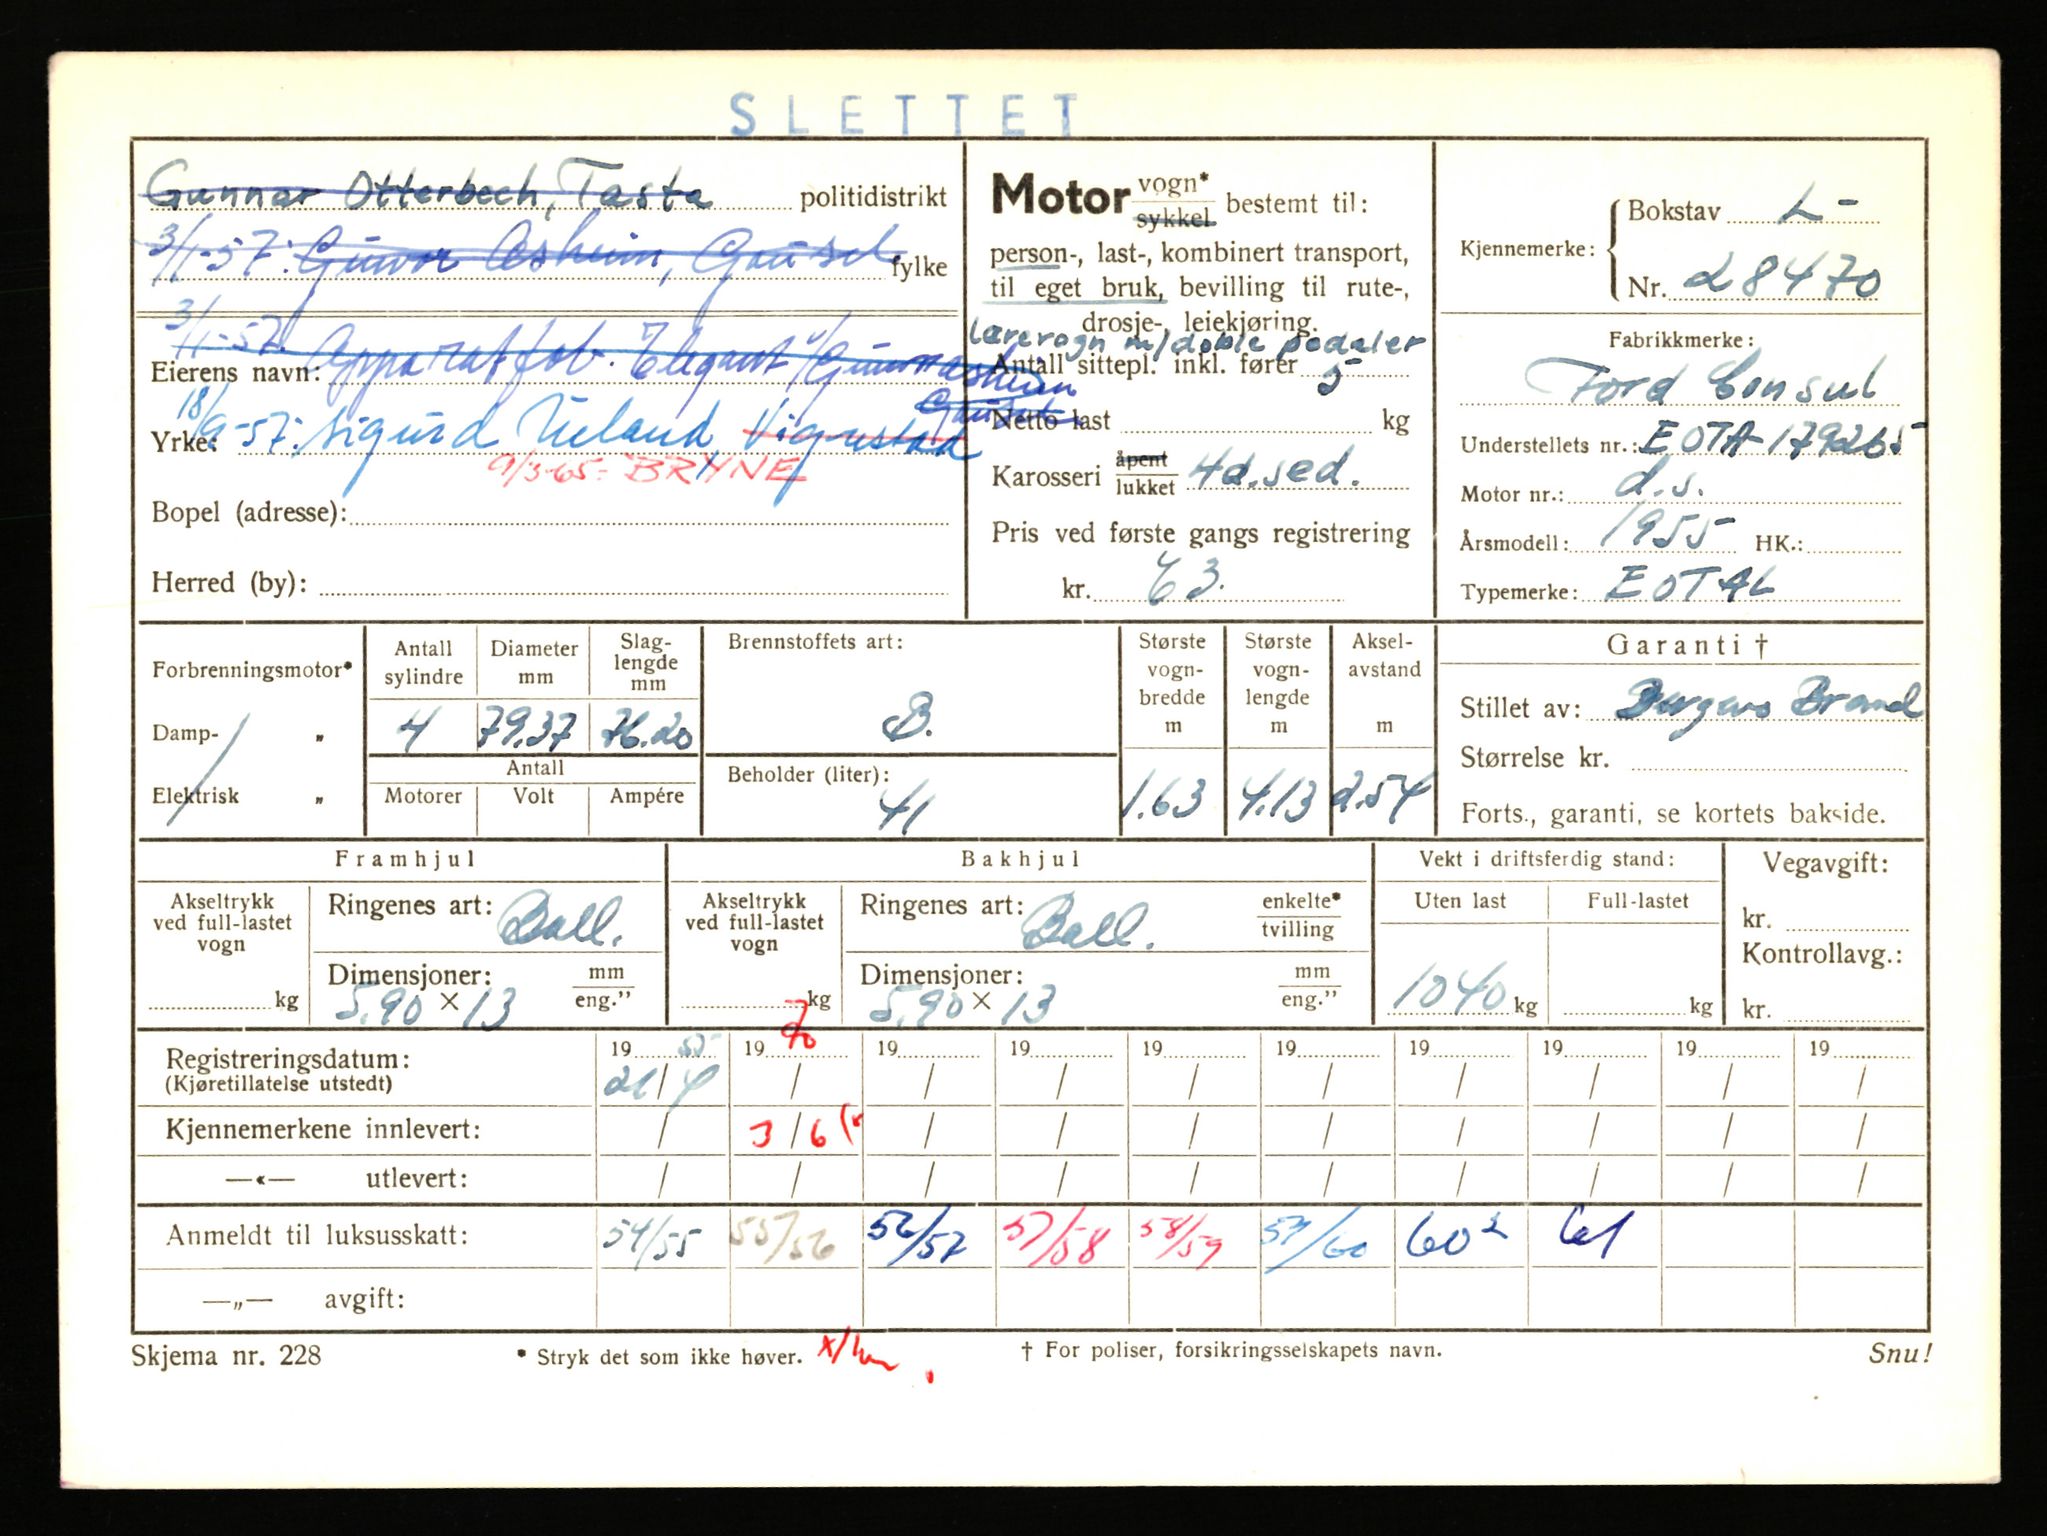 SLETTET
Gunnar Otterbech, Tasta politidistrikt
3/1-57: Gunvor Asheim, Gausel fylke
3/1-57. Apparatfab. Elegant v/Gunvor Asheim
Gausel
Eierens navn:
18/9-57: Sigurd Ueland Vigrestad
Yrke:
9/3-65: BRYNE
Bopel (adresse):
Herred (by):
Motor vogn* sykkel bestemt til:
person-, last-, kombinert transport,
til eget bruk, bevilling til rute-,
drosje-, leiekjøring.
Lærevogn m/doble pedaler
Antall sittepl. inkl. fører 5
Netto last kg
Karosseri åpent lukket 4d. sed.
Pris ved første gangs registrering
kr. 63.
Kjennemerke: Bokstav L-
Nr. 28470
Fabrikkmerke:
Ford Consul
Understellets nr.: EOTA-179265
Motor nr.: d.s.
Årsmodell: 1955 HK.:
Typemerke: EOTAL
Forbrenningsmotor*
Damp- „
Elektrisk „
Antall sylindre 4
Diameter mm 79.37
Slag-lengde mm 76.20
Antall
Motorer Volt Ampére
Brennstoffets art:
B.
Beholder (liter):
41
Største vogn-bredde m 1.63
Største vogn-lengde m 4.13
Aksel-avstand m 2.54
Garanti †
Stillet av: Bergens Brand
Størrelse kr.
Forts., garanti, se kortets bakside.
Framhjul
Akseltrykk ved full-lastet vogn kg
Ringenes art: Ball.
Dimensjoner: mm eng.”
5.90 x 13
Bakhjul
Akseltrykk ved full-lastet vogn kg
Ringenes art: Ball. enkelte* tvilling
Dimensjoner: mm eng.”
5.90 x 13
Vekt i driftsferdig stand:
Uten last Full-lastet
1040 kg kg
Vegavgift:
kr.
Kontrollavg.:
kr.
Registreringsdatum: 19 55 19 70 19 19 19 19 19 19 19 19
(Kjøretillatelse utstedt) 21/4 / / / / / / / / /
Kjennemerkene innlevert: / 3/6 / / / / / / / /
—«— utlevert: / / / / / / / / / /
Anmeldt til luksusskatt: 54/55 55/56 56/57 57/58 58/59 59/60 60² 61
—„— avgift:
Skjema nr. 228 * Stryk det som ikke høver. † For poliser, forsikringsselskapets navn. Snu!